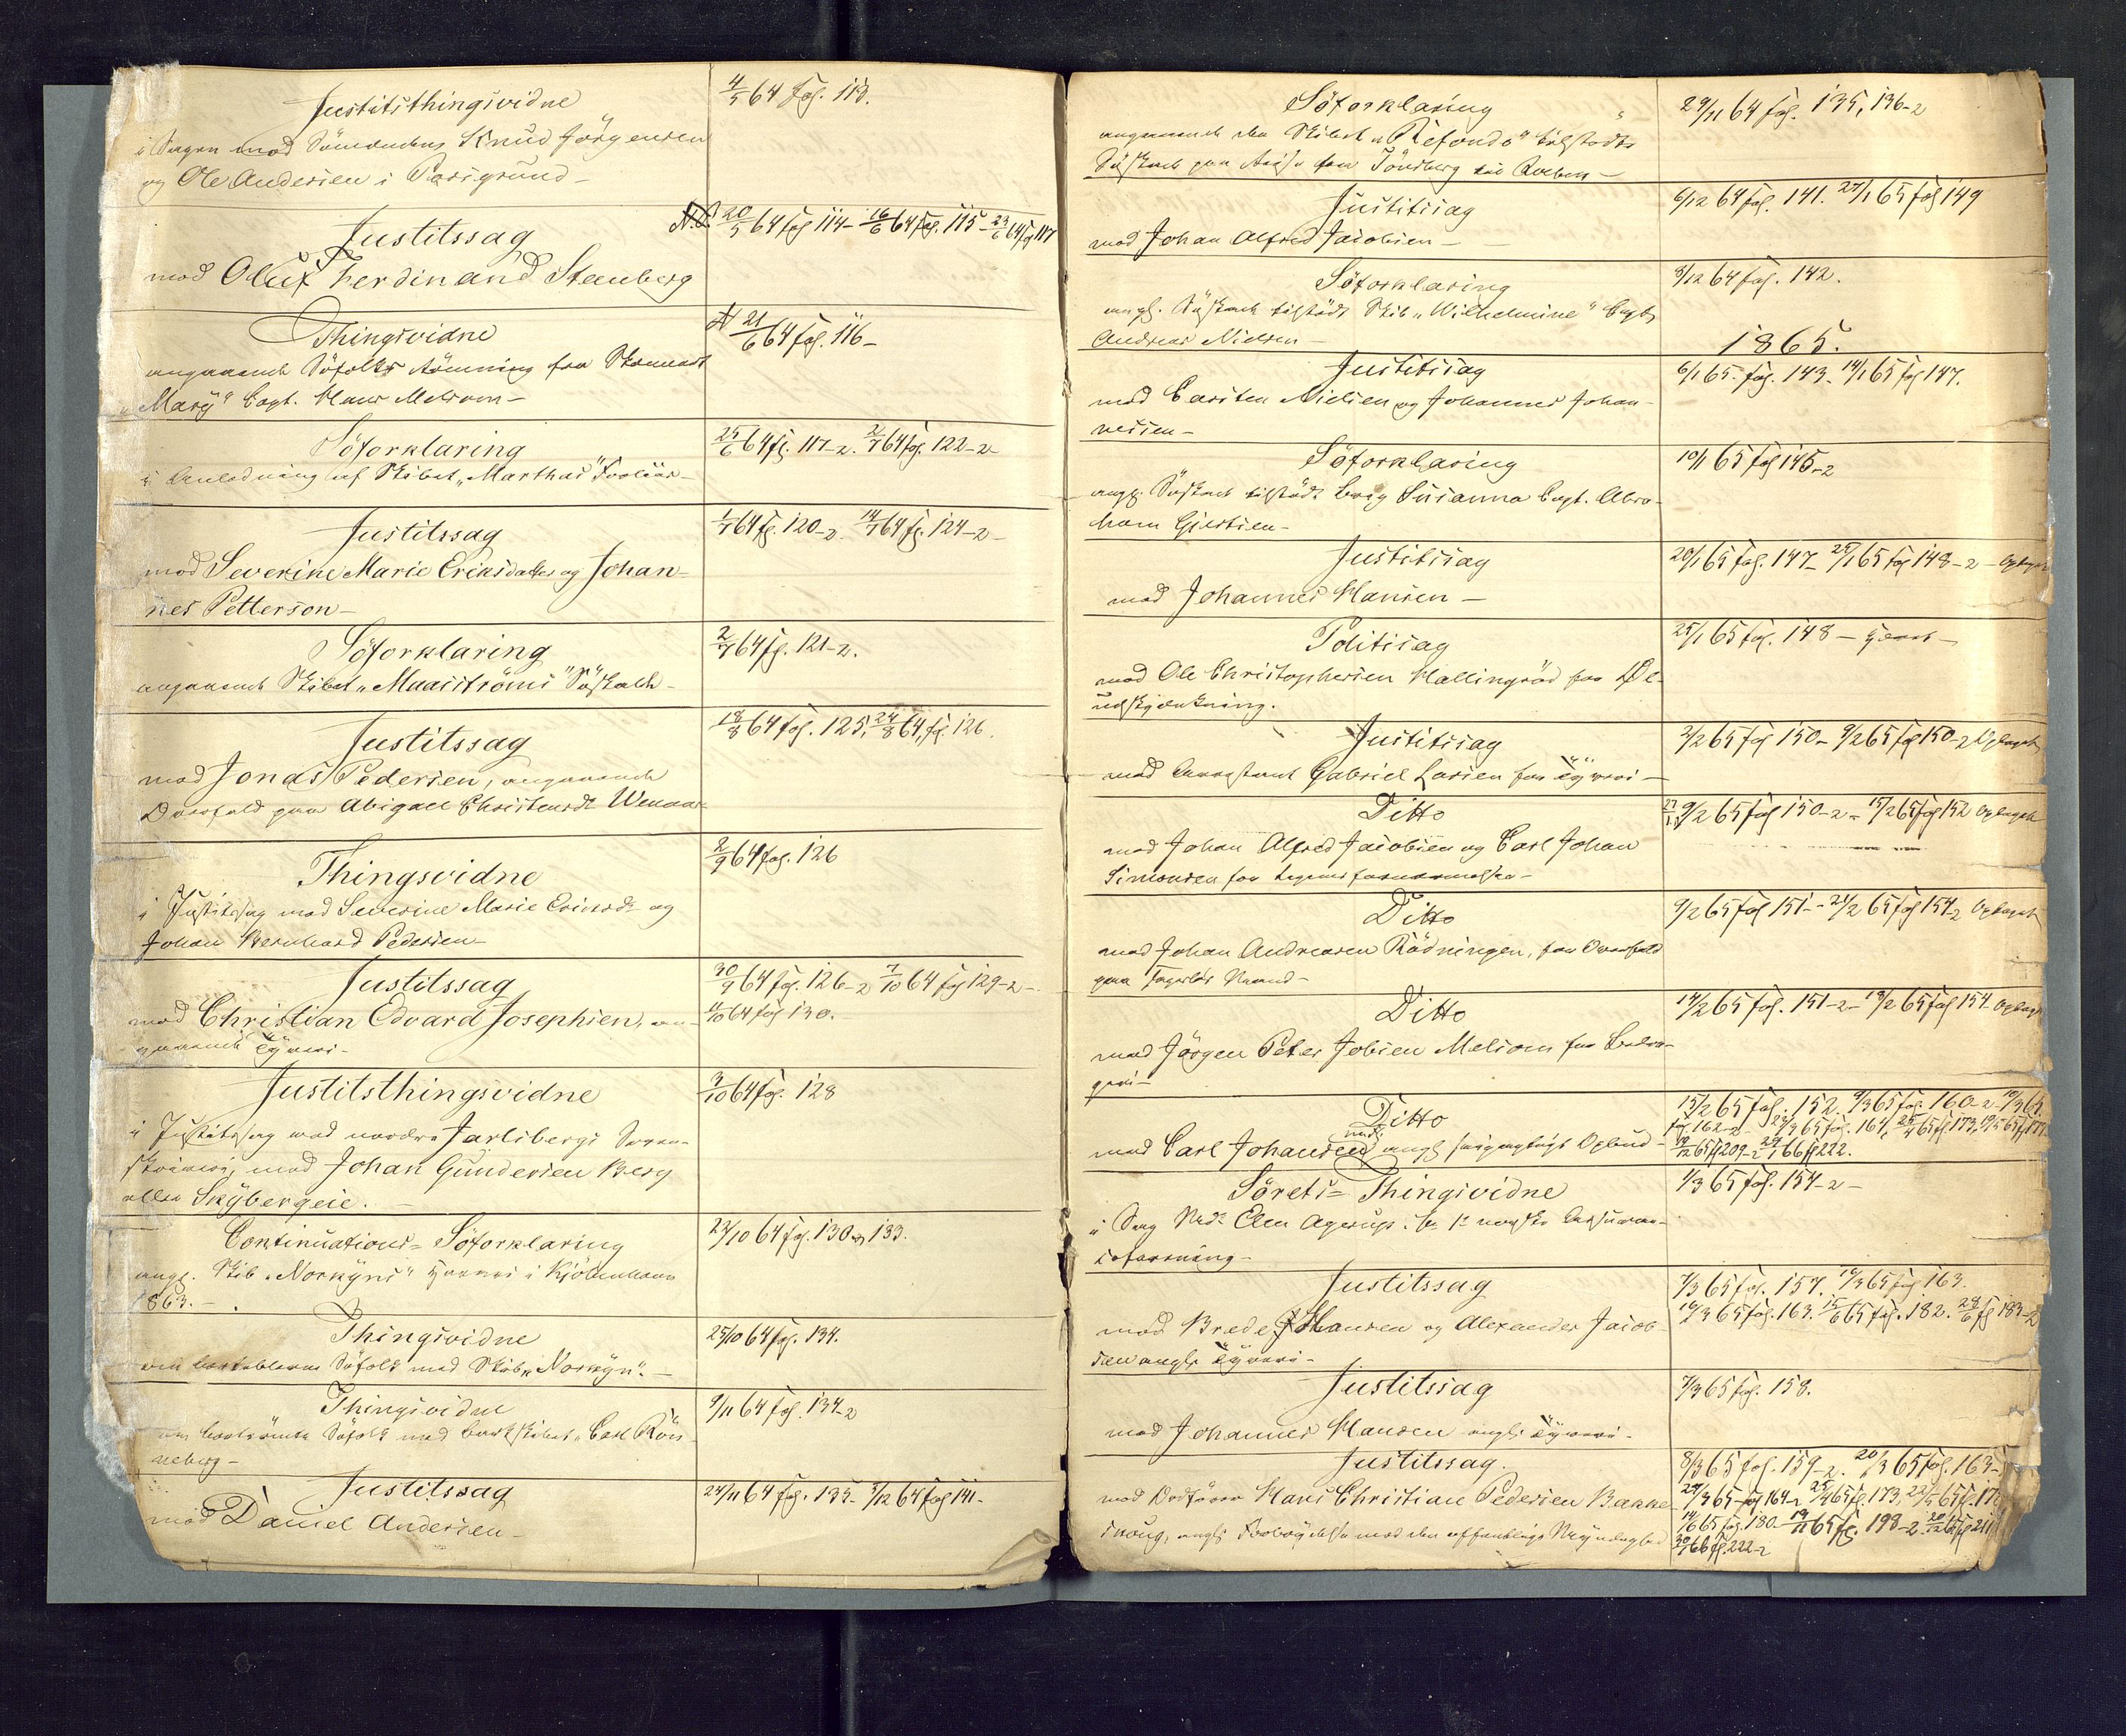 Justitsthingsvidne
4/5 64 fol. 113.
i Sagen mod Sömændene Knud Jörgensen
og Ole Andersen i Porsgrund -
Justitssag
20/5 64 fol 114 - 16/6 64 fol. 115 - 23/6 64 fol 117
mod Oluf Ferdinand Stenberg
Thingsvidne
21/6 64 fol. 116 -
angaaende Söfolks Römning fra
"Mary" Capt. Hans Melsom -
Söforklaring
25/6 64 fl. 117-2. 2/7 64 fol. 122-2
i Anledning af Skibet "Marthas" Forliis -
Justitssag
1/7 64 fl. 120-2. 14/7 64 fl. 124-2 -
mod Severine Marie Eriksdatter og Johan-
nes Petterson -
Söforklaring
2/7 64 fl. 121-2.
angaaende Skibet "Maaströms" Söskade -
Justitssag
18/8 64 fol. 125, 24/8 64, fol. 126.
mod Jonas Pedersen, angaaende
Overfald paa Abigael Christensdr
Thingsvidne
2/9 64 fol. 126
i Justitssag mod Severine Marie Eriksdr og
Johan Bernhard Pedersen -
Justitssag
30/9 64 fol. 126-2 7/10 64 fol 129-2 -
mod Christian Edvard Josephsen, an-
11/10 64 fol 130.
gaaende Tyveri -
Justitsthingsvidne
3/10 64 fol. 128
i Justitssag ved nordre Jarlsbergs Soren-
skriveri, mod Johan Gundersen Berg
eller Skybergeie. -
Continuations- Söforklaring
22/10 64 fol. 130 133.
angl. Skib "Norkyns" Havari i Kjöbenhavn
1863. -
Thingsvidne
25/10 64 fol. 134.
Söfolk med Skib "Norkyn". -
Thingsvidne
9/11 64 fol. 134-2
om bortrömte Söfolk med Barkskibet "Carl Rön-
neberg -
Justitssag
24/11 64 fol. 135 - 3/12 64 fol 141 -
mod Daniel Andersen -
Söforklaring
29/11 64 fol. 135, 136-2
angaaende den Skibet "Refondo" tilstødte
Söskade paa Reise fra Tönsberg til
Justitssag
6/12 64 fol. 141. 24/1 65 fol 149
mod Johan Alfred Jacobsen -
Söforklaring
8/12 64 fol. 142.
angl. Söskade tilstödt Skib "Wilhelmine" Capt.
Andreas Nielsen -
1865.
Justitssag
6/1 65. fol. 143. 14/1 65 fol 147.
mod Carsten Nielsen og Johannes Johan-
nessen -
Söforklaring
10/1 65 fol 145-2
angl. Söskade tilstödt Brig Susanna Capt. Abra-
ham Gjertsen -
Justitssag
20/1 65 fol. 147 - 25/1 65 fol 148-2 - Optaget
mod Johannes Hansen -
Politisag
25/1 65 fol. 148 -
mod Ole Christophersen Hallingröd for Øl-
udskjænkning.
Justitssag
2/2 65 fol 150 - 9/2 65 fol 150-2 Optaget
mod Arrestant Gabriel Larsen for Tyveri -
Ditto
9/2 65 fol 150-2 - 15/2 65 fol 152 Optaget
mod Johan Alfred Jacobsen og Carl Johan
Simonsen for Legemsfornærmelse -
Ditto
9/2 65 fol 151 - 21/2 65 fol 154-2 Optaget
mod Johan Andreasen Rödningen, for Overfald
paa Sagesløs Mand -
Ditto
14/2 65 fol. 151-2 - 18/2 65 fol 154 Optaget
mod Jörgen Peter Jobsen Melsom for Bedra-
geri -
Ditto
15/2 65 fol. 152. 9/3 65 fol. 160-2. 18/3 65.
fol. 162-2 65 fol. 164, 25/4 65 fl 173, 65 fl 177
mod Carl Johansen angl. Opbud -
19/12 65 fl 209-2 24/1 66 fl 222.
Sörets- Thingsvidne
1/3 65 fol. 154-2 -
i Sag Md: Elen Agerup ctr. 1ste norske Assurance-
Justitssag
7/3 65 fol. 157. 16/3 65 fol 163.
16/3 65 fol. 163. 15/6 65 fol. 182. 28/6 fl 183-2
mod Brede Hansen og Alexander Jacob-
sen angl. Tyveri -
Justitssag
7/3 65 fol. 158.
mod Johannes Hansen angl: Tyveri -
Justitssag.
8/3 65 fol. 159-2. 20/3 65 fol. 163-
mod Ordfører Hans Christian Pedersen Bakke-
24/3 65 fol 164-2 25/4 65 fl. 173, 22/5 65 fl. 17
skoug, angl: Forbrydelse mod den offentlige Myndighed
14/6 65 fol. 180 - 19/11 65 fl. 198-2. 20/12 65 fl 211
30/1 66 fl. 222-2